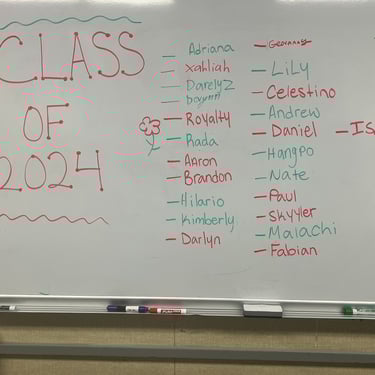 CLASS
OF
2024
- Adriana
- Xahliah
- Darelyz
- Royalty
- Rada
- Aaron
- Brandon
- Hilario
- Kimberly
- Darlyn
- LiLy
- Celestino
- Andrew
- Daniel
- Hangpo
- Nate
- Paul
- Skyyler
- Malachi
- Fabian